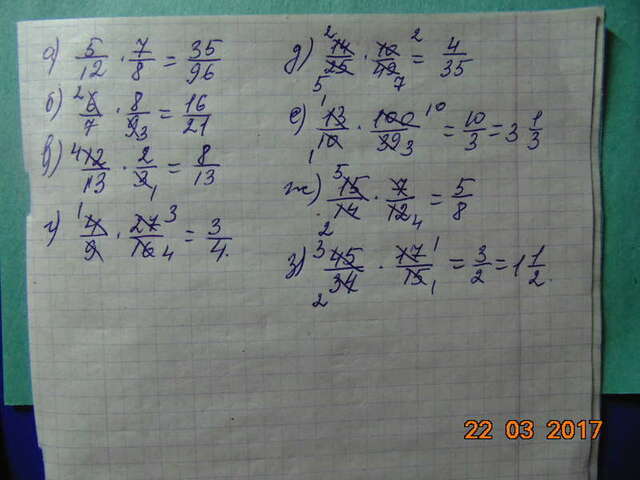 а) 5/12 · 7/8 = 35/96
б) 6/7 · 8/9 = 16/21
в) 12/13 · 2/3 = 8/13
г) 4/9 · 27/16 = 3/4
д) 14/25 · 10/49 = 4/35
е) 13/10 · 100/39 = 10/3 = 3 1/3
ж) 15/14 · 7/12 = 5/8
з) 45/34 · 17/15 = 3/2 = 1 1/2
22 03 2017